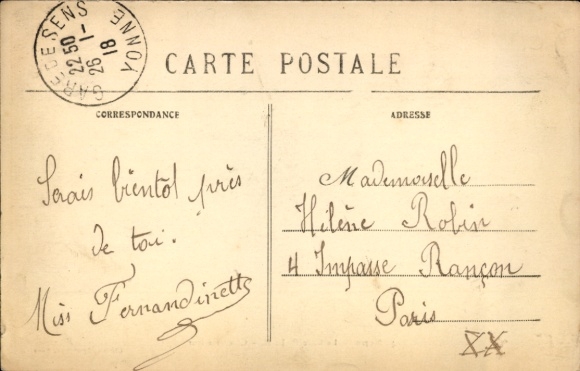 GARE DE SENS
YONNE
22 50
26 -1
18
CARTE POSTALE
CORRESPONDANCE
ADRESSE
Serais bientôt près
de toi.
Miss Fernandinette
Mademoiselle
Hélène Robin
4 Impasse Rançon
Paris
XX